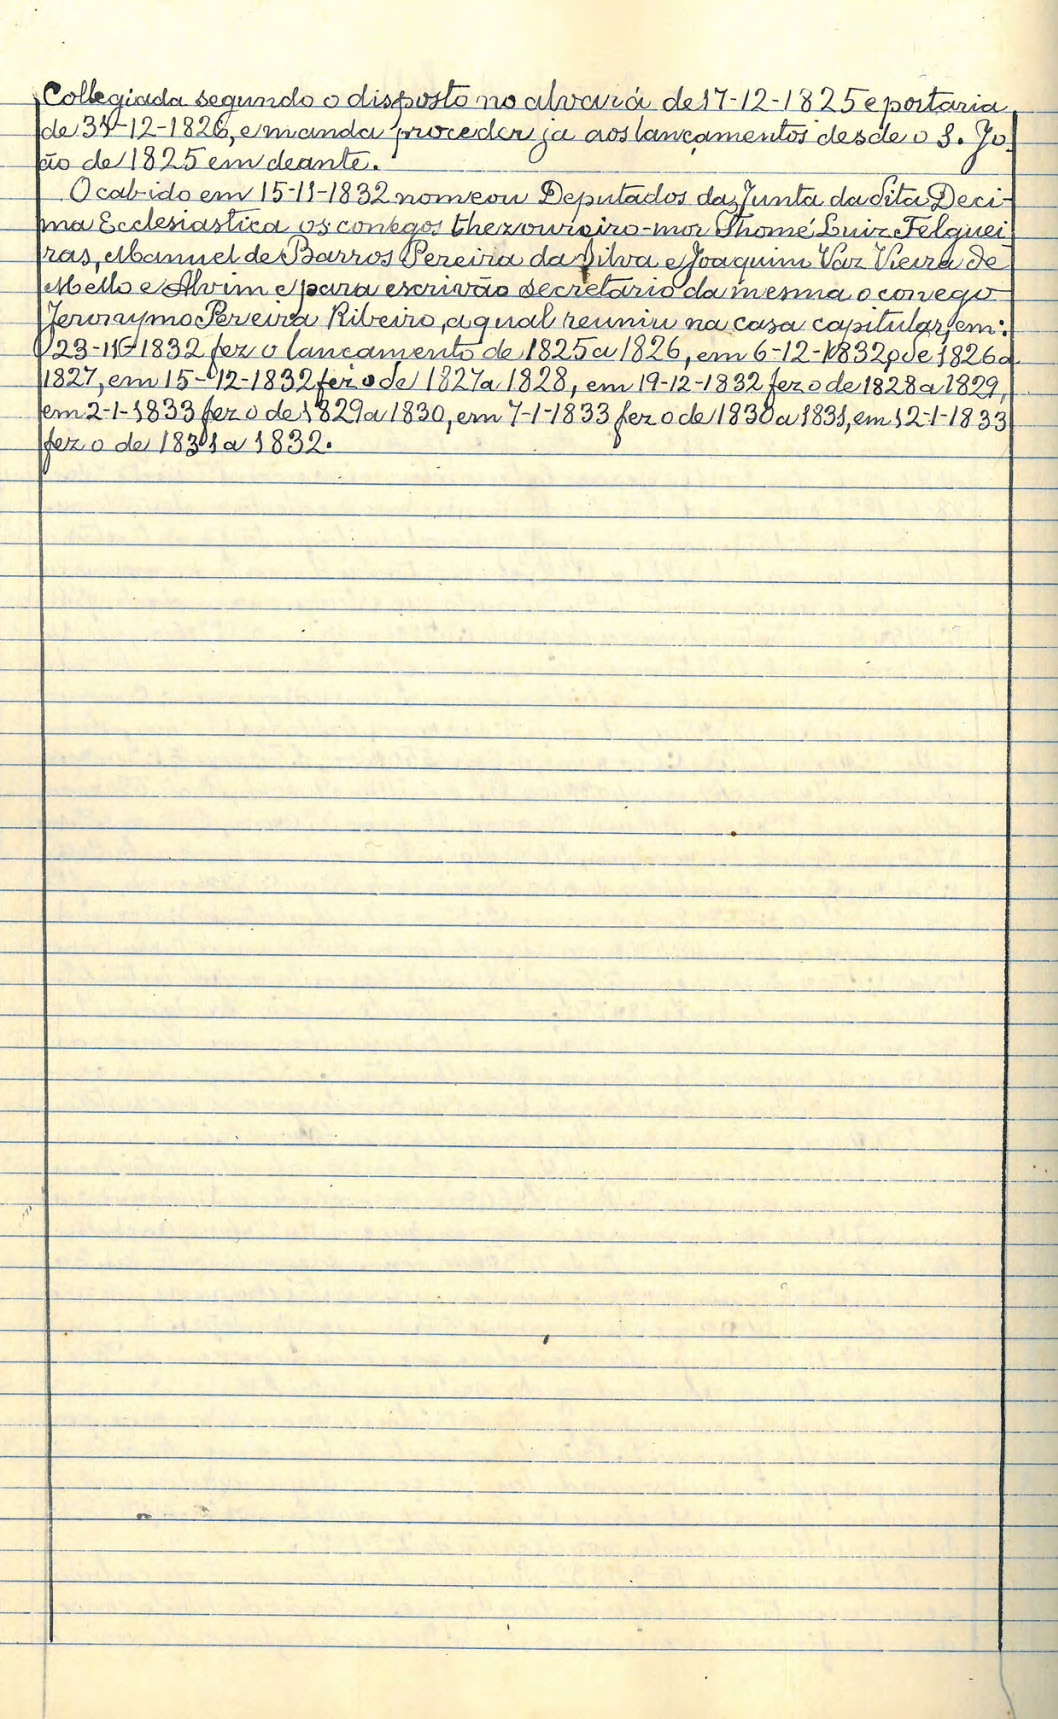 Collegiada segundo o disposto no alvará de 17-12-1825 e portaria
de 31-12-1826, e manda proceder ja aos lançamentos desde o S. Jo-
ão de 1825 em deante.
O cabido em 15-11-1832 nomeou Deputados da Junta da dita Deci-
ma Ecclesiastica os conegos thezoureiro-mor Thomé Luiz Felguei
ras, Manuel de Barros Pereira da Silva e Joaquim Vaz Vieira de
Mello e Alvim e para escrivão secretario da mesma o conego
Jeronymo Pereira Ribeiro, a qual reuniu na casa capitular, em:
23-11-1832 fez o lancamento de 1825 a 1826, em 6-12-1832 o de 1826 a
1827, em 15-12-1832 fez o de 1827 a 1828, em 19-12-1832 fez o de 1828 a 1829,
em 2-1-1833 fez o de 1829 a 1830, em 7-1-1833 fez o de 1830 a 1831, em 12-1-1833
fez o de 1831 a 1832.